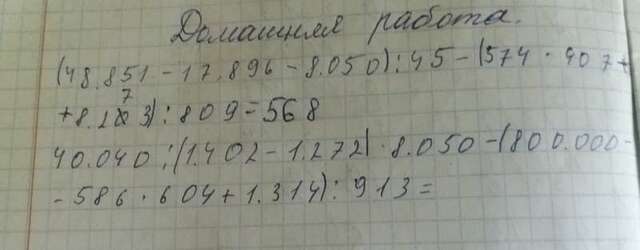 Домашняя работа.
(48.851 - 17.896 - 8.050) : 45 - (574 · 407 +
+ 8.273) : 809 = 568
40.040 : (1.402 - 1.272) · 8.050 - (800.000 -
- 586 · 604 + 1.314) : 913 =